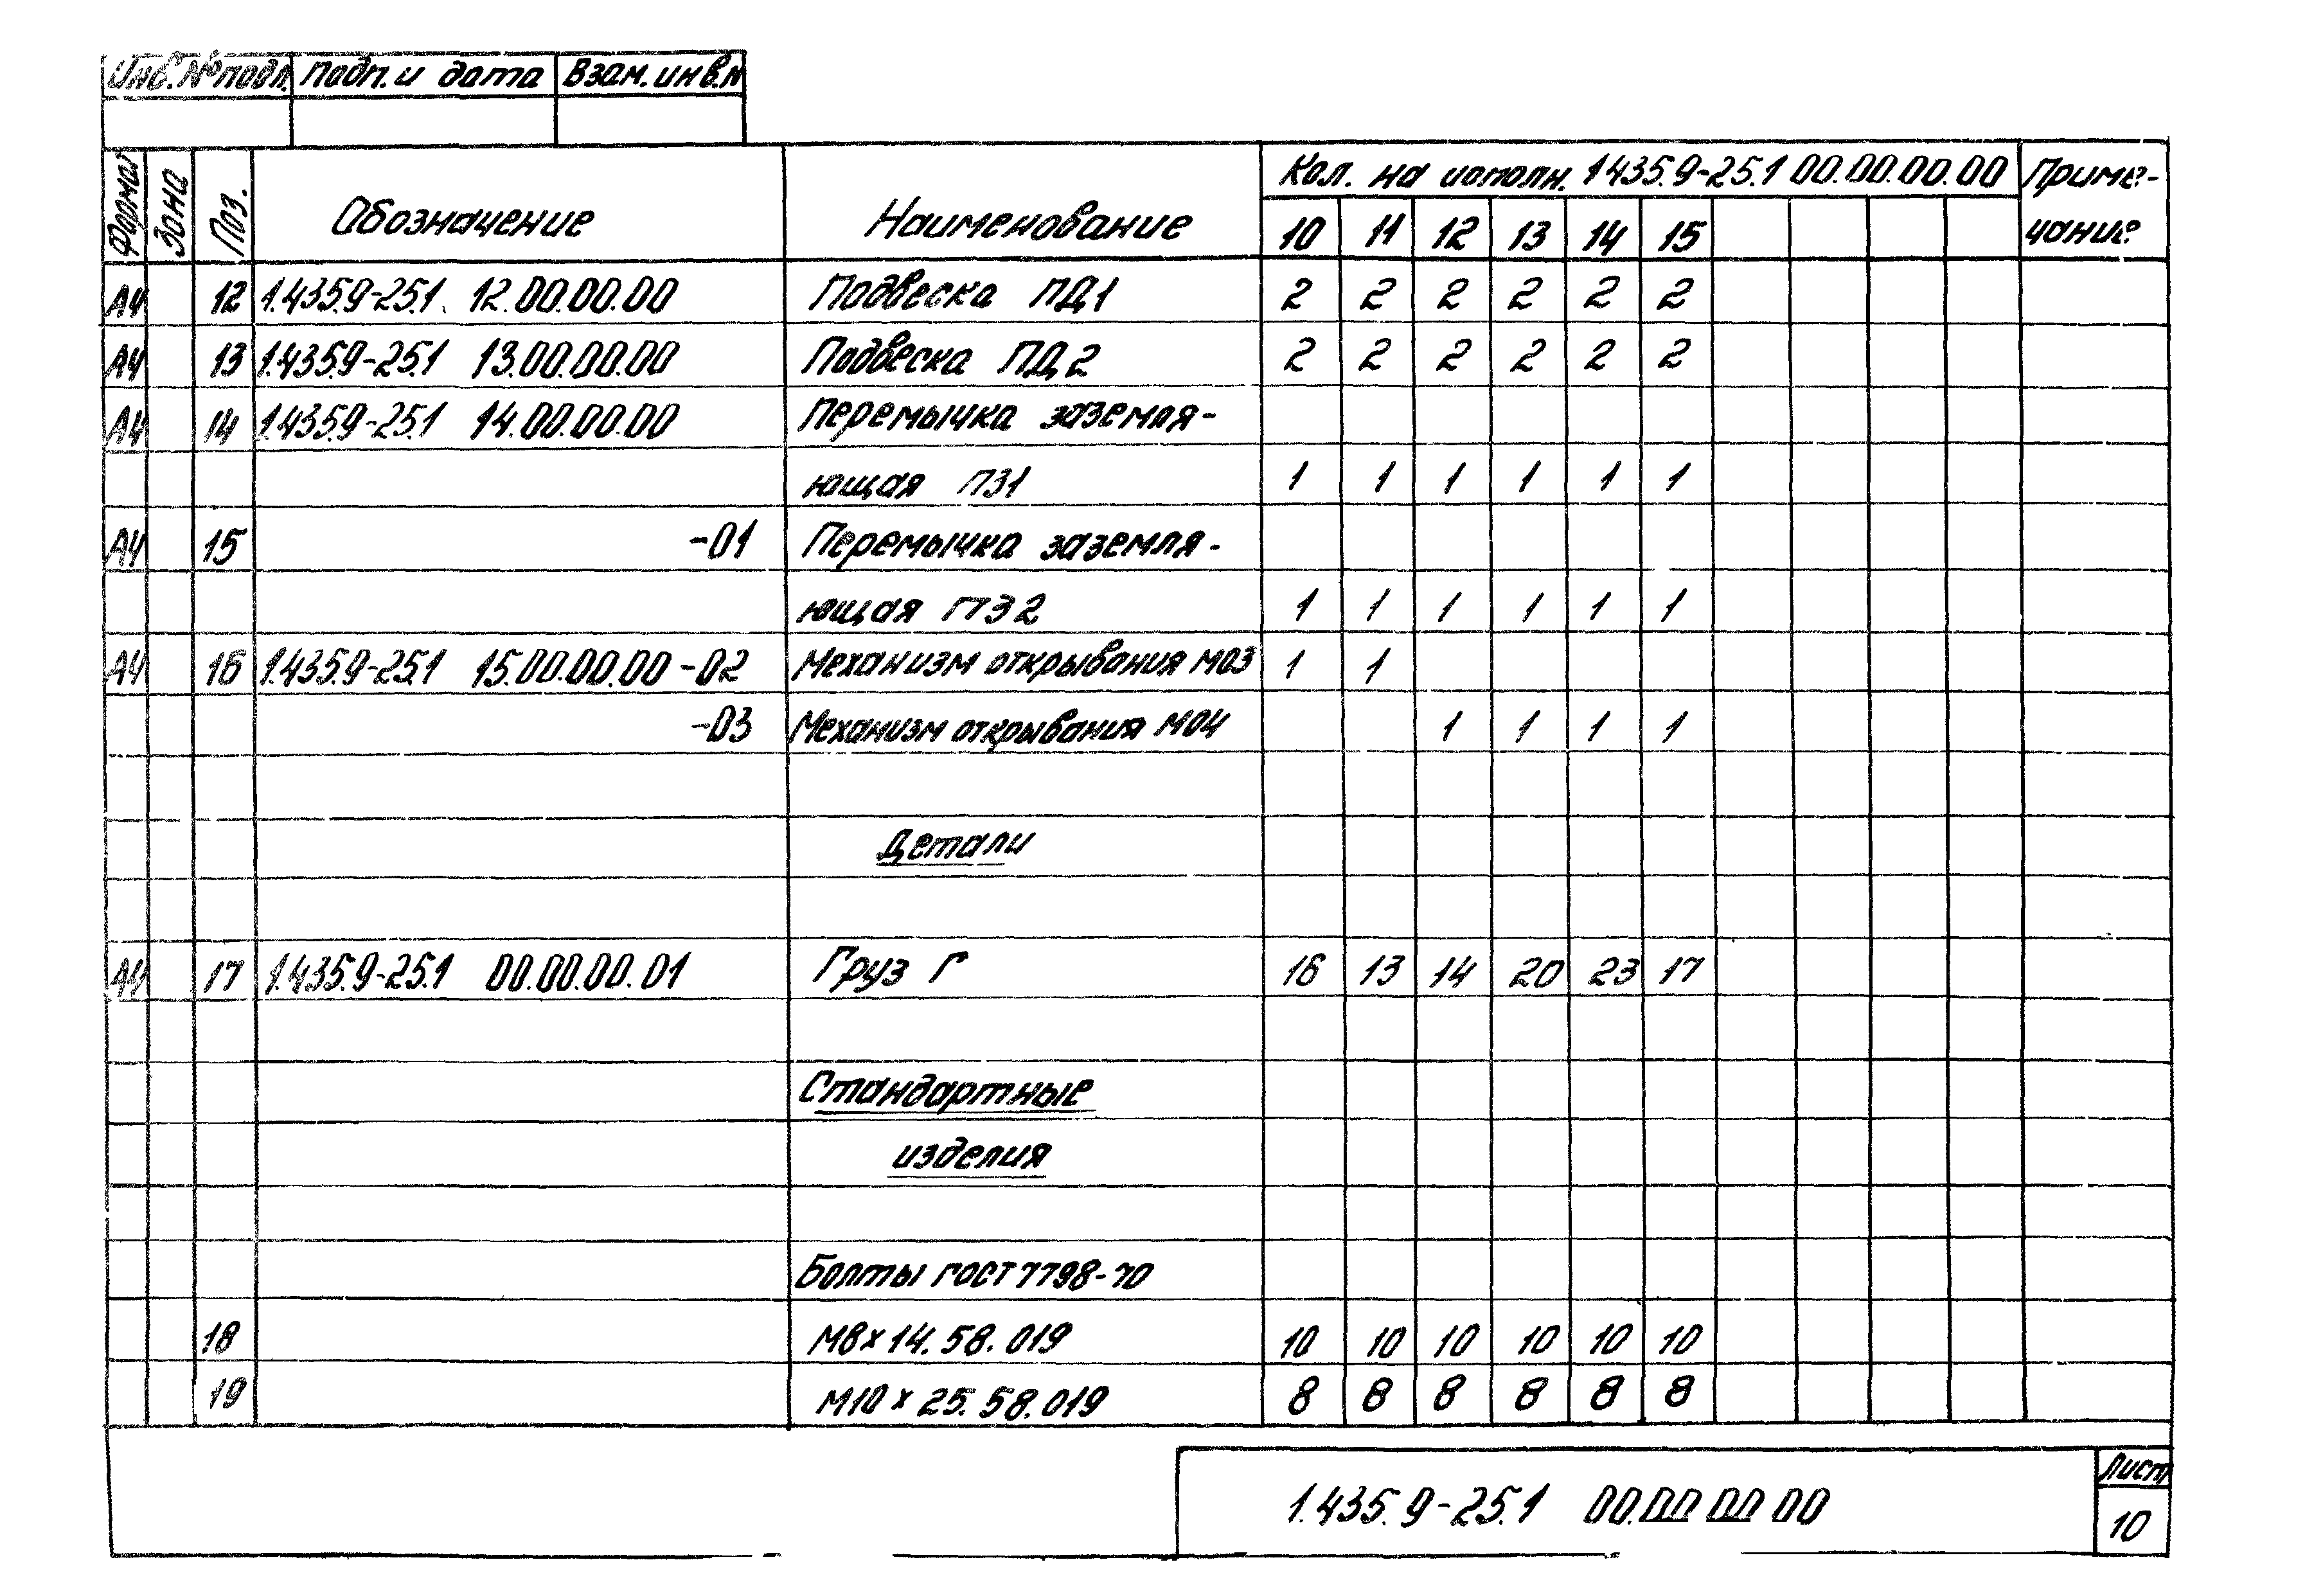 Инв.№подл. Подп.и дата Взам.инв.N
Формат Зона Поз. Обозначение Наименование Кол. на исполн. 1.435.9-25.1 00.00.00.00 Приме-
чание
10 11 12 13 14 15
А4 12 1.435.9-25.1 12.00.00.00 Подвеска ПД1 2 2 2 2 2 2
А4 13 1.435.9-25.1 13.00.00.00 Подвеска ПД2 2 2 2 2 2 2
А4 14 1.435.9-25.1 14.00.00.00 Перемычка заземля-
ющая ПЗ1 1 1 1 1 1 1
А4 15 -01 Перемычка заземля-
ющая ПЗ2 1 1 1 1 1 1
А4 16 1.435.9-25.1 15.00.00.00 -02 Механизм открывания МО3 1 1
-03 Механизм открывания МО4 1 1 1 1
Детали
А4 17 1.435.9-25.1 00.00.00.01 Груз Г 16 13 14 20 23 17
Стандартные
изделия
Болты ГОСТ 7798-70
18 М8х14.58.019 10 10 10 10 10 10
19 М10х25.58.019 8 8 8 8 8 8
1.435.9-25.1 00.00.00.00 Лист
10